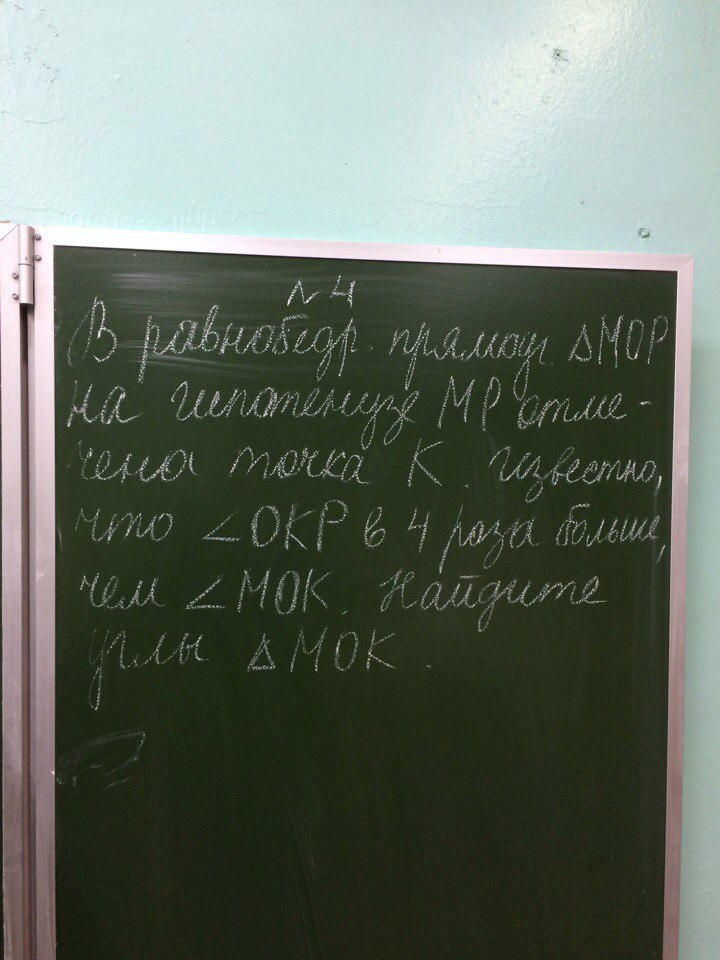 N 4
В равнобедр. прямоуг. △МОР
на гипотенузе МР отме-
чена точка К. Известно,
что ∠ОКР в 4 раза больше,
чем ∠МОК. Найдите
углы △МОК.